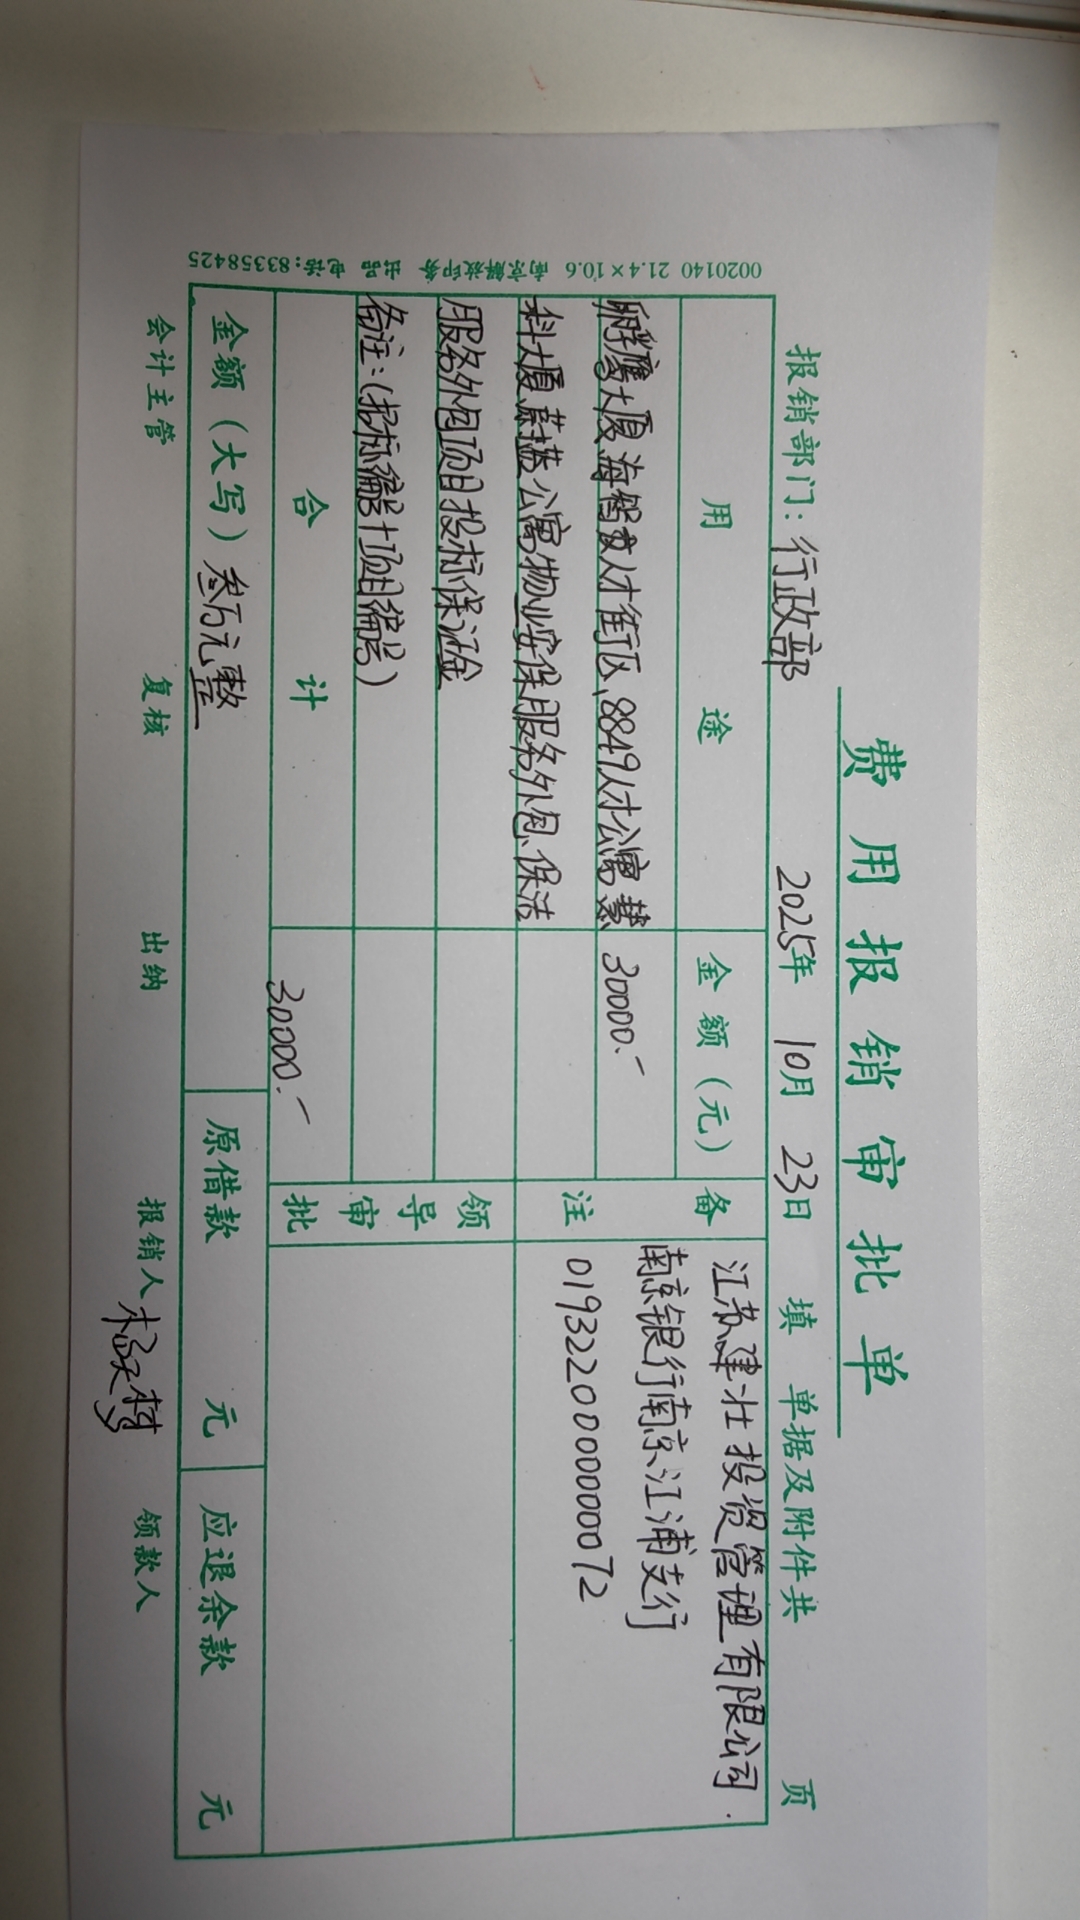 费用报销审批单
报销部门：行政部 2025年 10月 23日 填 单据及附件共 页
用 途 金 额（元） 备注
孵鹰大厦、海智数人才街区、8849人才公寓、慧 30000.-
科大厦、蔚蓝公寓物业安保服务外包、保洁
服务外包项目投标保证金
备注：（招标编号+项目编号）
江苏建壮投资管理有限公司
南京银行南京江浦支行
0193220000000072
领导审批
合 计 30000.-
金额（大写）叁万元整 原借款 元 应退余款 元
会计主管 复核 出纳 报销人 领款人
0020140 21.4×10.6 南京解放印务 出品 电话:83358425